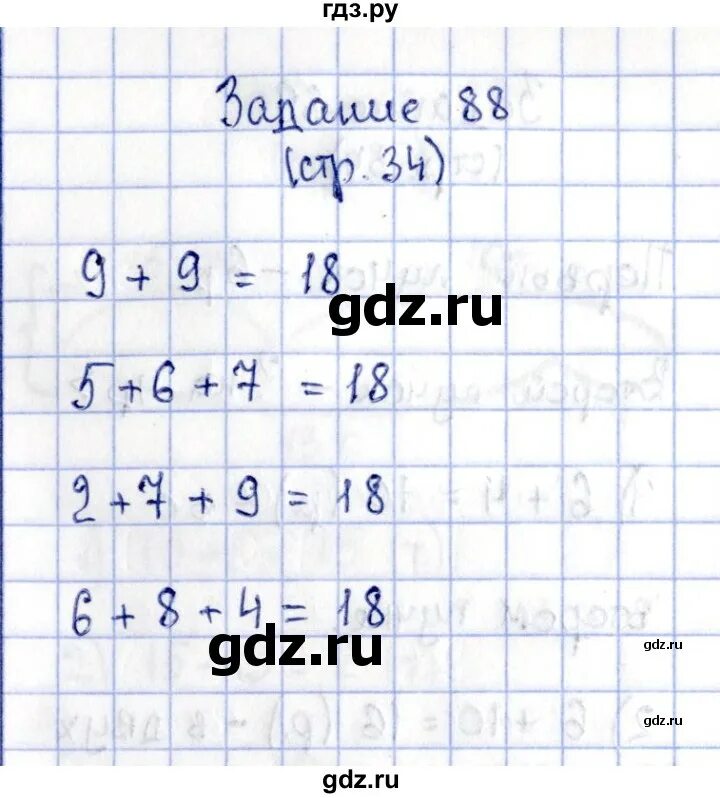 гдз.ру
Задание 88
(стр. 34)
9 + 9 = 18
gdz.ru
5 + 6 + 7 = 18
2 + 7 + 9 = 18
6 + 8 + 4 = 18
gdz.ru
gdz.ru
gdz.ru
gdz.ru